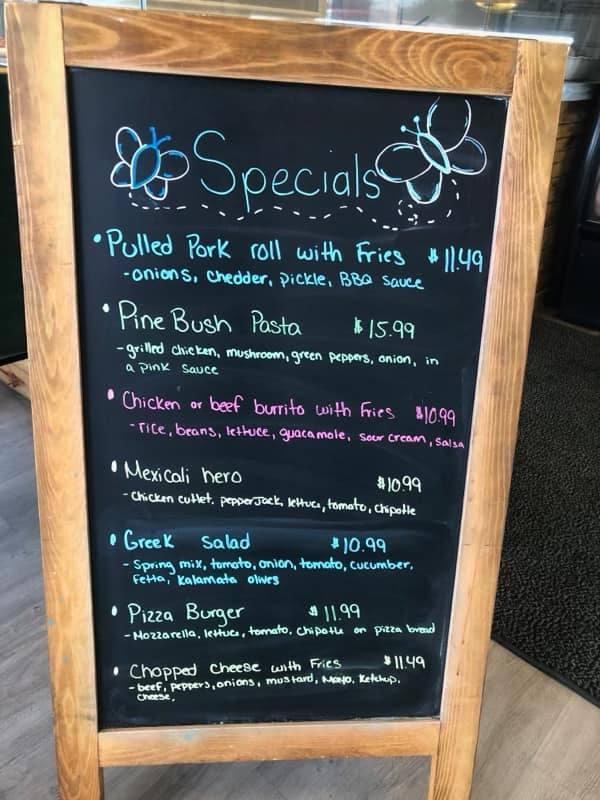 Specials
• Pulled Pork roll with Fries $11.49
- onions, chedder, pickle, BBQ sauce
• Pine Bush Pasta $15.99
- grilled chicken, mushroom, green peppers, onion, in
a pink sauce
• Chicken or beef burrito with Fries $10.99
- rice, beans, lettuce, guacamole, sour cream, salsa
• Mexicali hero $10.99
- Chicken cutlet, pepperJack, lettuce, tomato, chipotle
• Greek Salad $10.99
- Spring mix, tomato, onion, tomato, cucumber,
Fetta, Kalamata olives
• Pizza Burger $11.99
- Mozzarella, lettuce, tomato, Chipotle on pizza bread
• Chopped Cheese with Fries $11.49
- beef, peppers, onions, mustard, Mayo, Ketchup,
cheese,